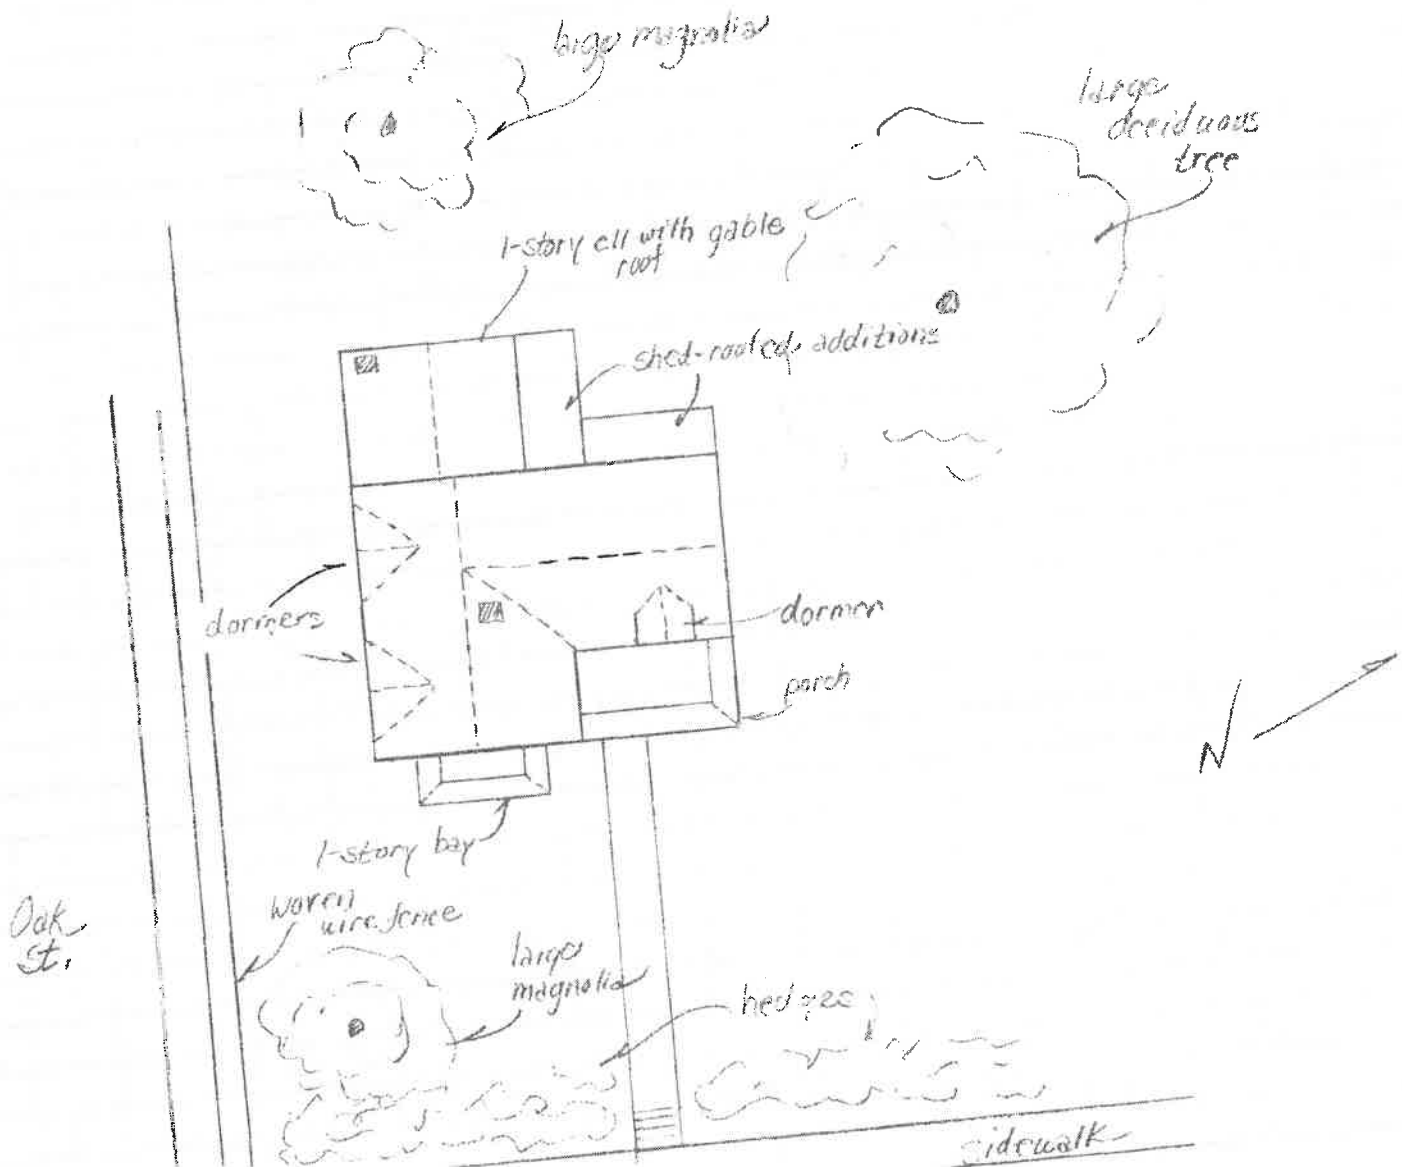 large magnolia
large
deciduous
tree
1-story ell with gable
roof
shed-roofed additions
dormers
dormer
porch
N
1-story bay
Oak
St.
woven
wire fence
large
magnolia
hedges
sidewalk